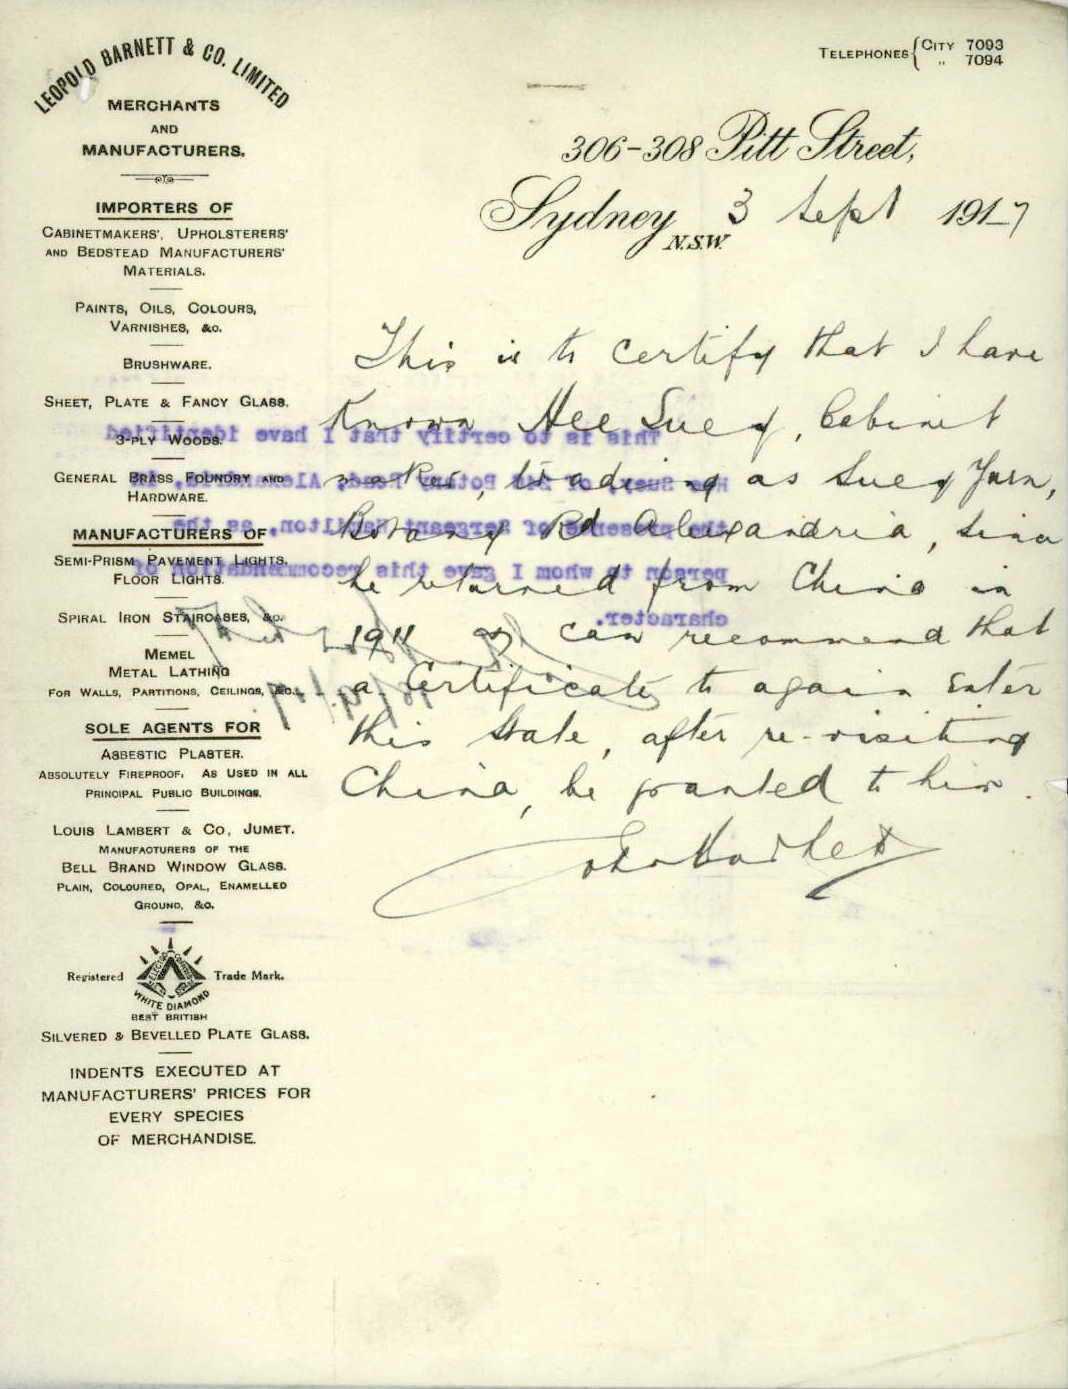 LEOPOLD BARNETT & CO. LIMITED
MERCHANTS
AND
MANUFACTURERS.
IMPORTERS OF
CABINETMAKERS', UPHOLSTERERS'
AND BEDSTEAD MANUFACTURERS'
MATERIALS.
PAINTS, OILS, COLOURS,
VARNISHES, &c.
BRUSHWARE.
SHEET, PLATE & FANCY GLASS.
3-PLY WOODS.
GENERAL BRASS FOUNDRY AND
HARDWARE.
MANUFACTURERS OF
SEMI-PRISM PAVEMENT LIGHTS.
FLOOR LIGHTS.
SPIRAL IRON STAIRCASES, &c.
MEMEL
METAL LATHING
FOR WALLS, PARTITIONS, CEILINGS, &c.
SOLE AGENTS FOR
ASBESTIC PLASTER.
ABSOLUTELY FIREPROOF. AS USED IN ALL
PRINCIPAL PUBLIC BUILDINGS.
LOUIS LAMBERT & CO, JUMET.
MANUFACTURERS OF THE
BELL BRAND WINDOW GLASS.
PLAIN, COLOURED, OPAL, ENAMELLED
GROUND, &c.
Registered Trade Mark.
WHITE DIAMOND
BEST BRITISH
SILVERED & BEVELLED PLATE GLASS.
INDENTS EXECUTED AT
MANUFACTURERS' PRICES FOR
EVERY SPECIES
OF MERCHANDISE.
TELEPHONES { CITY 7093
„ 7094
306-308 Pitt Street,
Sydney 3 Sept 1917
N.S.W.
This is to certify that I have
Known Hee Suey, Cabinet
maker, trading as Suey Yarn,
Botany Rd Alexandria, since
he returned from China in
1911 & can recommend that
a Certificate to again enter
this State, after re-visiting
China, be granted to him.
This is to certify that I have identified
Hee Suey, of Botany Road, Alexandria, in
the presence of Sergeant Hamilton, as the
person to whom I gave this recommendation of
character.